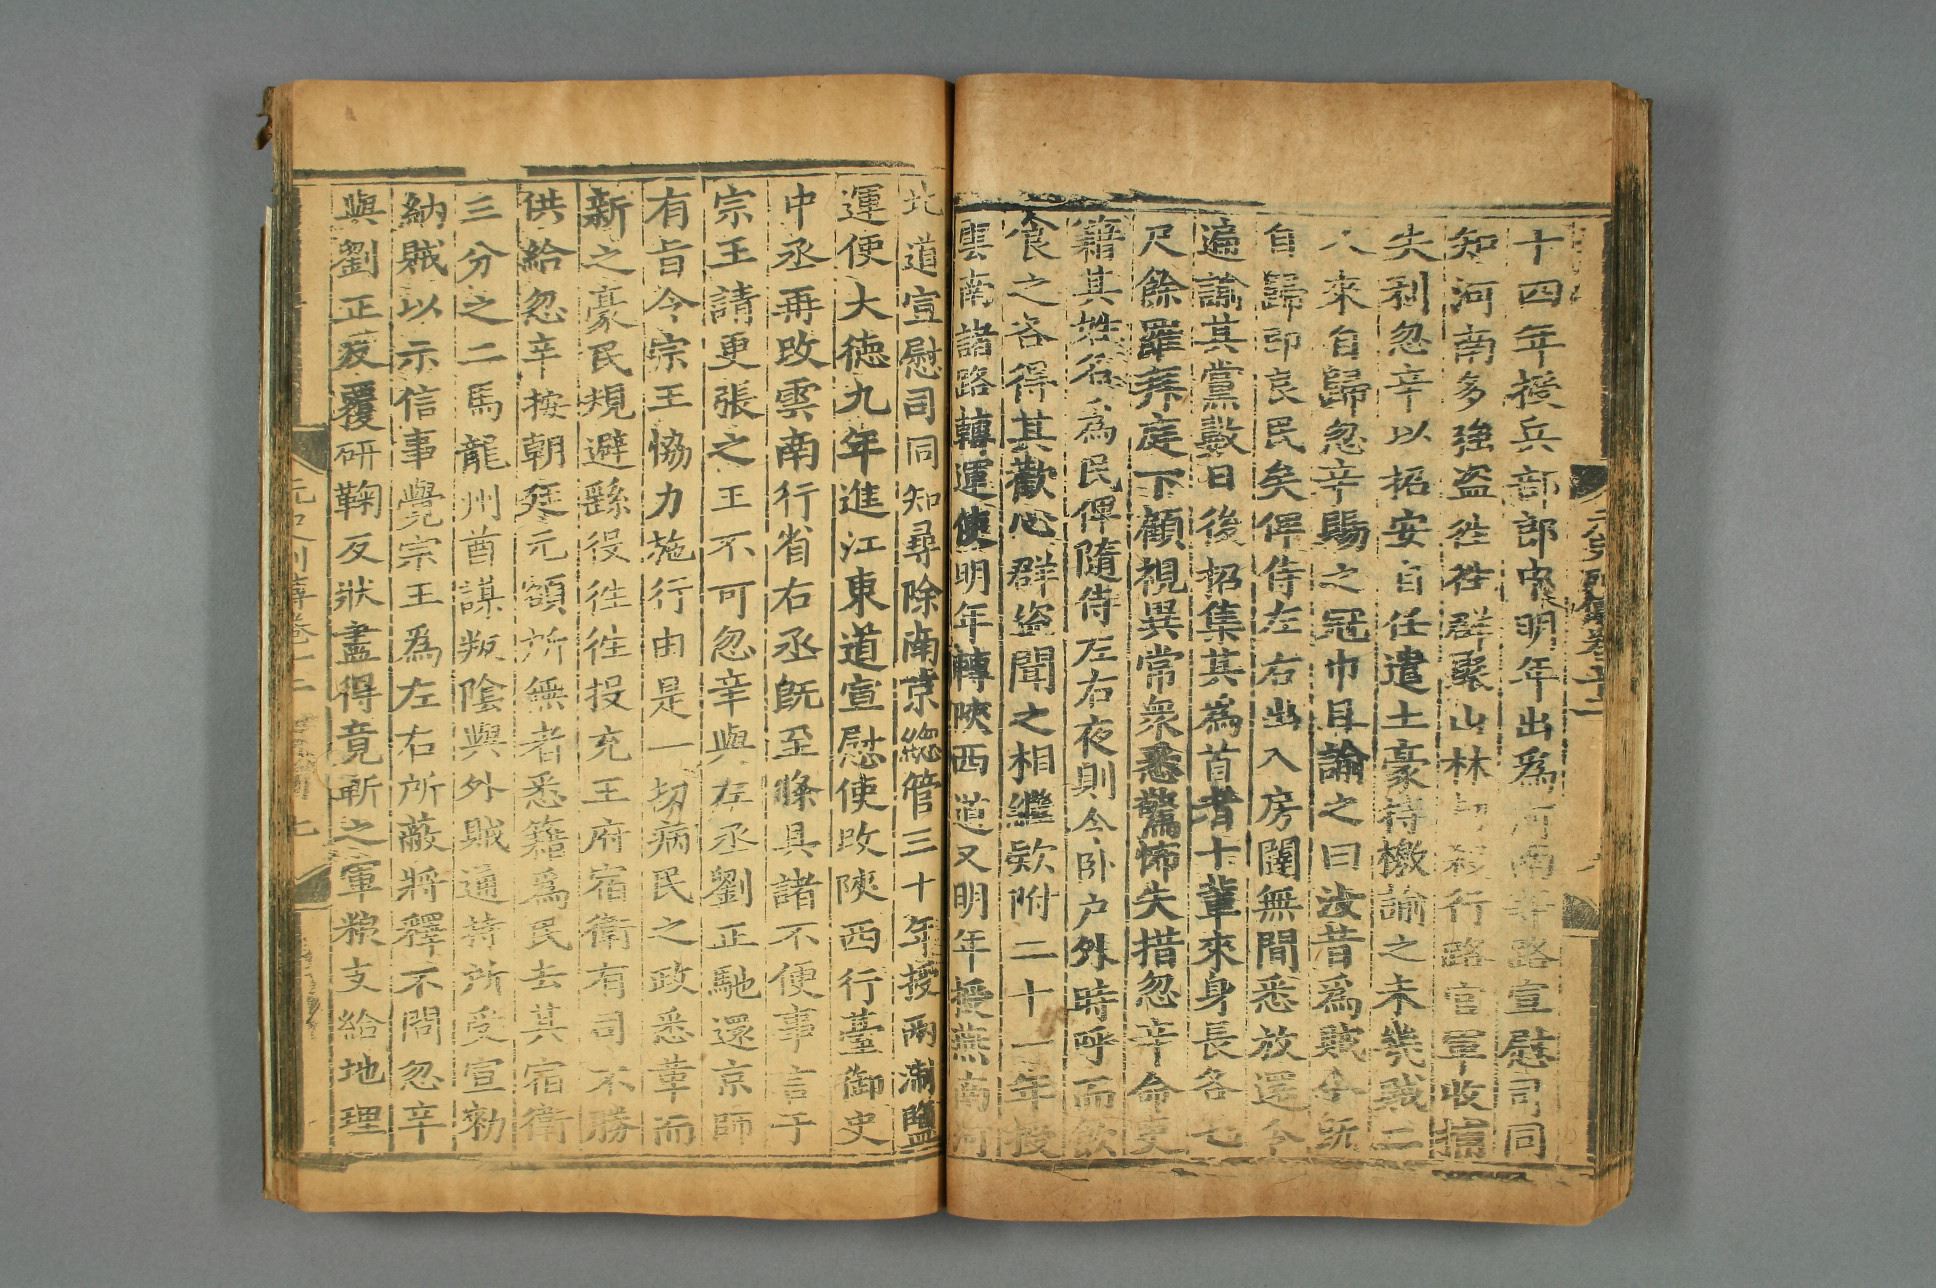 十四年授兵部郎中明年出爲河南等路宣慰司同
知河南多強盗徃徃群聚山林劫殺行路官軍收捕
失利忽辛以招安自任遣土豪持檄諭之未幾賊二
人來自歸忽辛賜之冠巾且諭之曰汝昔爲賊今旣
自歸即良民矣俾侍左右出入房闥無間悉放還令
遍諭其黨數日後招集其爲首者十輩來身長各七
尺餘羅拜庭下顧視異常衆悉驚怖失措忽辛命吏
籍其姓名爲民俾隨侍左右夜則令卧户外時呼而飲
食之各得其歡心群盗聞之相繼欵附二十一年授
雲南諸路轉運使明年轉陜西道又明年授燕南河
北道宣慰司同知尋除南京緫管三十年授兩浙鹽
運使大徳九年進江東道宣慰使改陜西行臺御史
中丞再改雲南行省右丞旣至條具諸不便事言于
宗王請更張之王不可忽辛與左丞劉正馳還京師
有旨令宗王恊力施行由是一切病民之政悉革而
新之豪民規避繇役徃徃投充王府宿衛有司不勝
供給忽辛按朝廷元額所無者悉籍爲民去其宿衛
三分之二馬龍州酋謀叛陰與外賊通持所受宣勑
納賊以示信事覺宗王爲左右所蔽將釋不問忽辛
與劉正反覆研鞠反狀盡得竟斬之軍粮支給地理